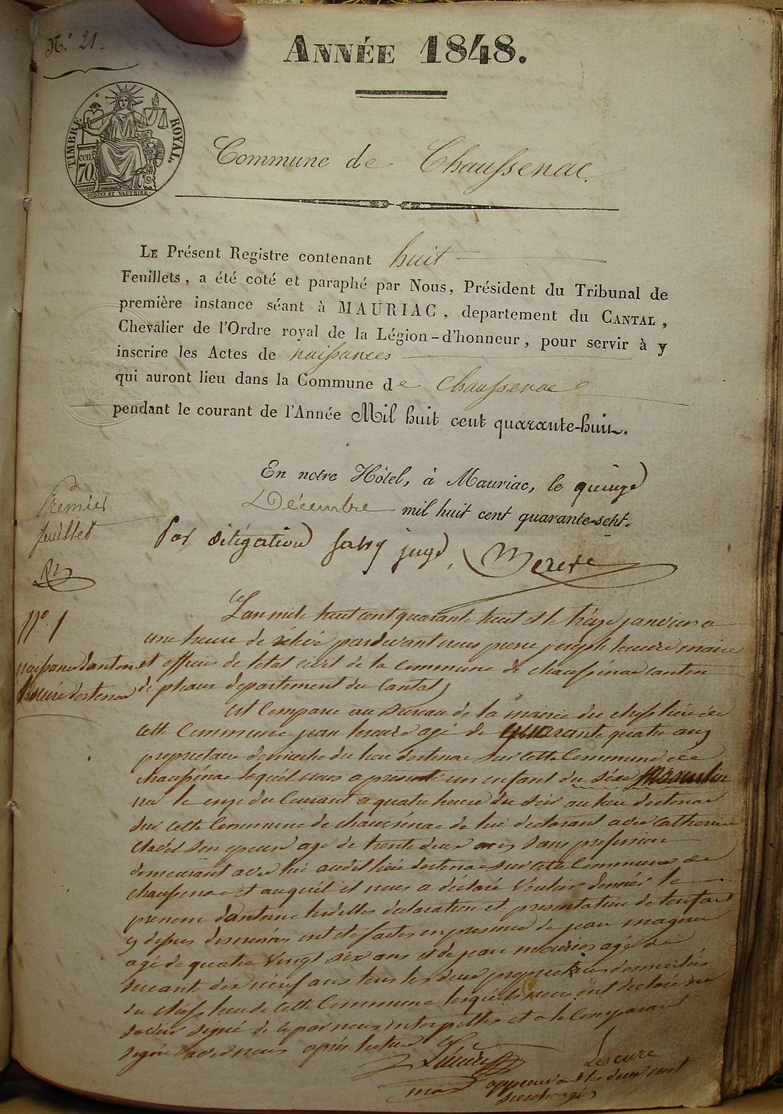 N.° 21.
ANNÉE 1848.
TIMBRE ROYAL.
70
Commune de Chaussenac
LE Présent Registre contenant huit
Feuillets, a été coté et paraphé par Nous, Président du Tribunal de
première instance séant à MAURIAC, departement du CANTAL,
Chevalier de l'Ordre royal de la Légion-d'honneur, pour servir à y
inscrire les Actes de naissances
qui auront lieu dans la Commune de Chaussenac
pendant le courant de l'Année Mil huit cent quarante-huit.
En notre Hôtel, à Mauriac, le quinze
Décembre mil huit cent quarante-sept.
Premier
feuillet
Par délégation juge,
N° 1
naissance d'antoine
L'an mile huit cent quarante huit et le treze janvier a
une heure de par devant nous pierre joseph maire
et officier de letat civil de la Commune de chaussenac canton
de pleaux departement du Cantal
Est Comparu au Bureau de la mairie du chef lieu de
cette Commune jean agé de quarante quatre ans
proprietaire domicilié du lieu destenac sur cette Commune de
chaussenac lequel nous a presenté un enfant du sexe Masculin
né le onze du Courant a quatre heure du soir au lieu destenac
sur cette Commune de chaussenac de lui declarant et de Catherine
son epouse agé de trente deux ans sans profession
demeurant avec lui audit lieu destenac sur cette Commune de
chaussenac et auquel il nous a declaré Vouloir donner le
prenom d'antoine lesdittes declaration et presentation de lenfant
ont eté faites en presence de jean
agé de quatre Vingt six ans et de jean agé de
soixante dix neuf ans tous les deux propriétaires domiciliés
du chef lieu de cette Commune lesquels nous ont declaré ne
savoir signé de ce par nous interpellés et a le Comparant
signé avec nous après lecture
Lescure
approuvé mot
surchargé